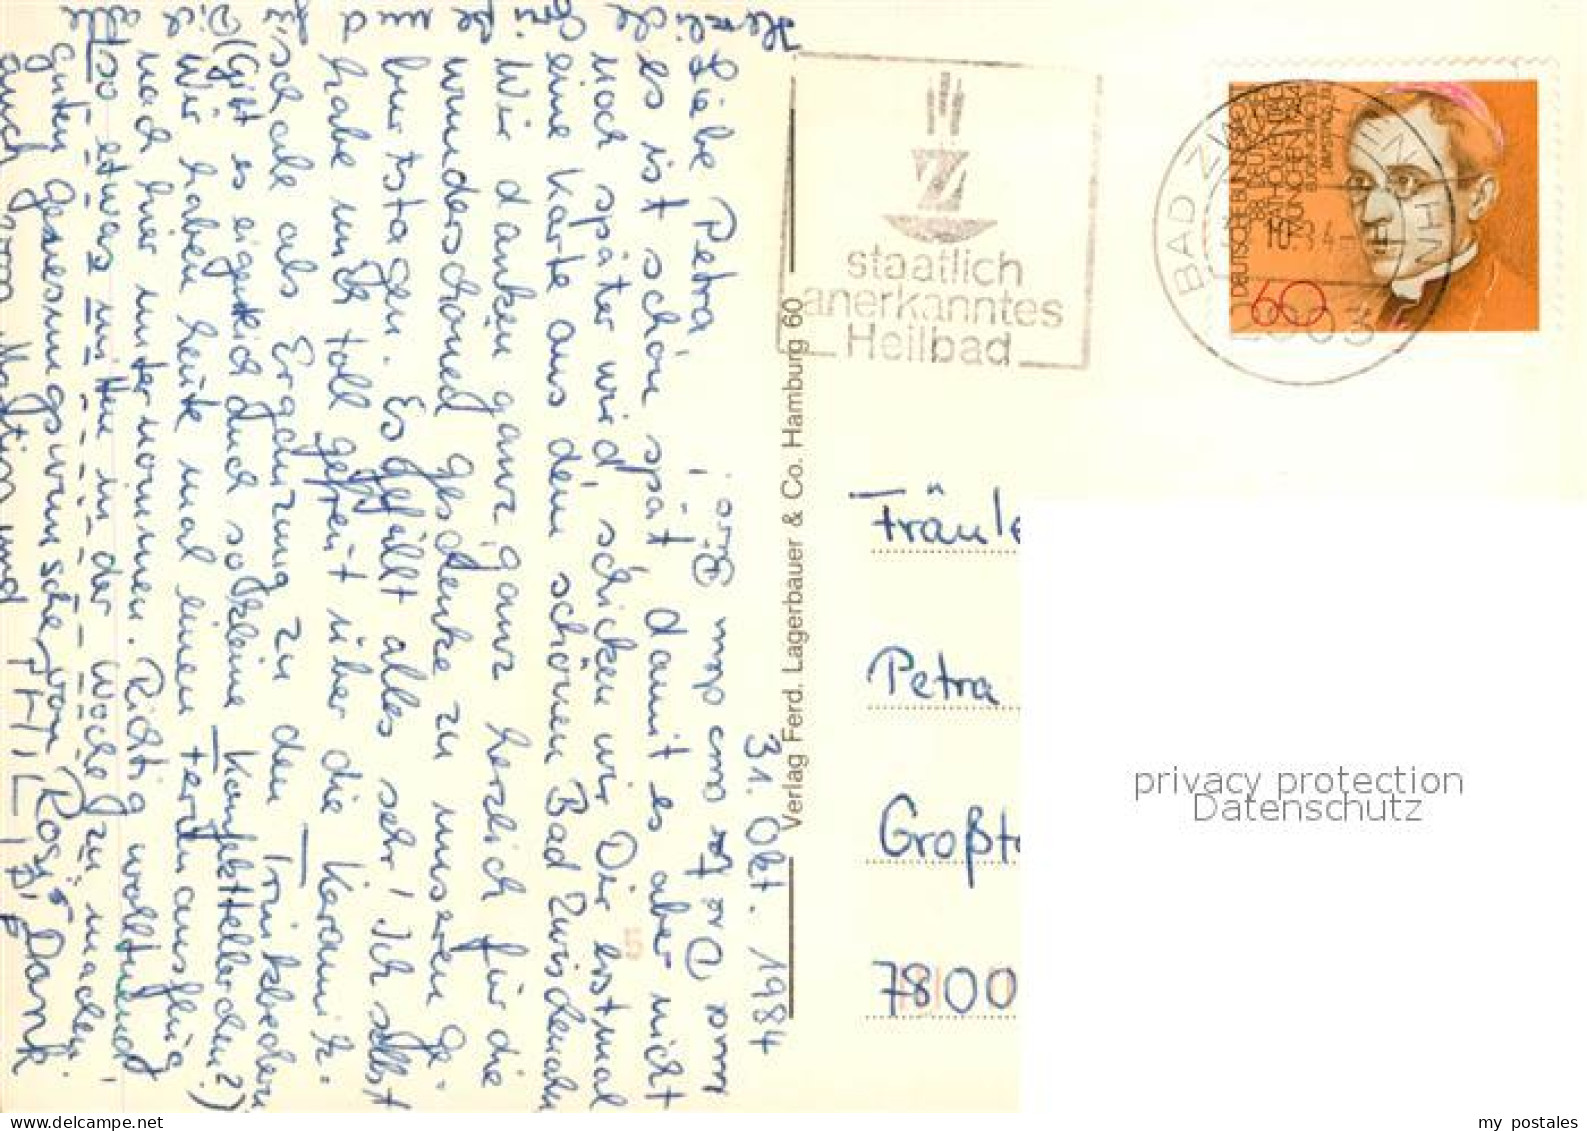 31. Okt. 1984
Liebe Petra,
es ist schön spät, damit es aber nicht
noch später wird, schicken wir Dir erstmal
eine Karte aus dem schönen Bad Zwischenahn
Wir danken ganz, ganz herzlich für die
wunderschönen Geschenke zu unseren Ge-
burtstagen. Es gefällt alles sehr! Ich selbst
habe mich toll gefreut über die Keramik-
schale als Ergänzung zu den Trinkbechern
(Gibt es eigentlich auch so kleine Konfekttellerchen?)
Wir haben heute mal einen Ternausflug
nach hier unternommen. Richtig wolltuend
so etwas mitten in der Woche zu machen.
guten Genesungswünsche von Rosi. Dank
auch zum Martin und PHILIPP
Herzliche Grüße und
Dich
alle
Büro!
Verlag Ferd. Lagerbauer & Co. Hamburg 60
staatlich
anerkanntes
Heilbad
BAD ZWISCHENAHN
2903
DEUTSCHE BUNDESPOST
88. DEUTSCHER
KATHOLIKENTAG
MÜNCHEN 1984
60
Fräule
Petra
Großt
7800
privacy protection
Datenschutz
my postales